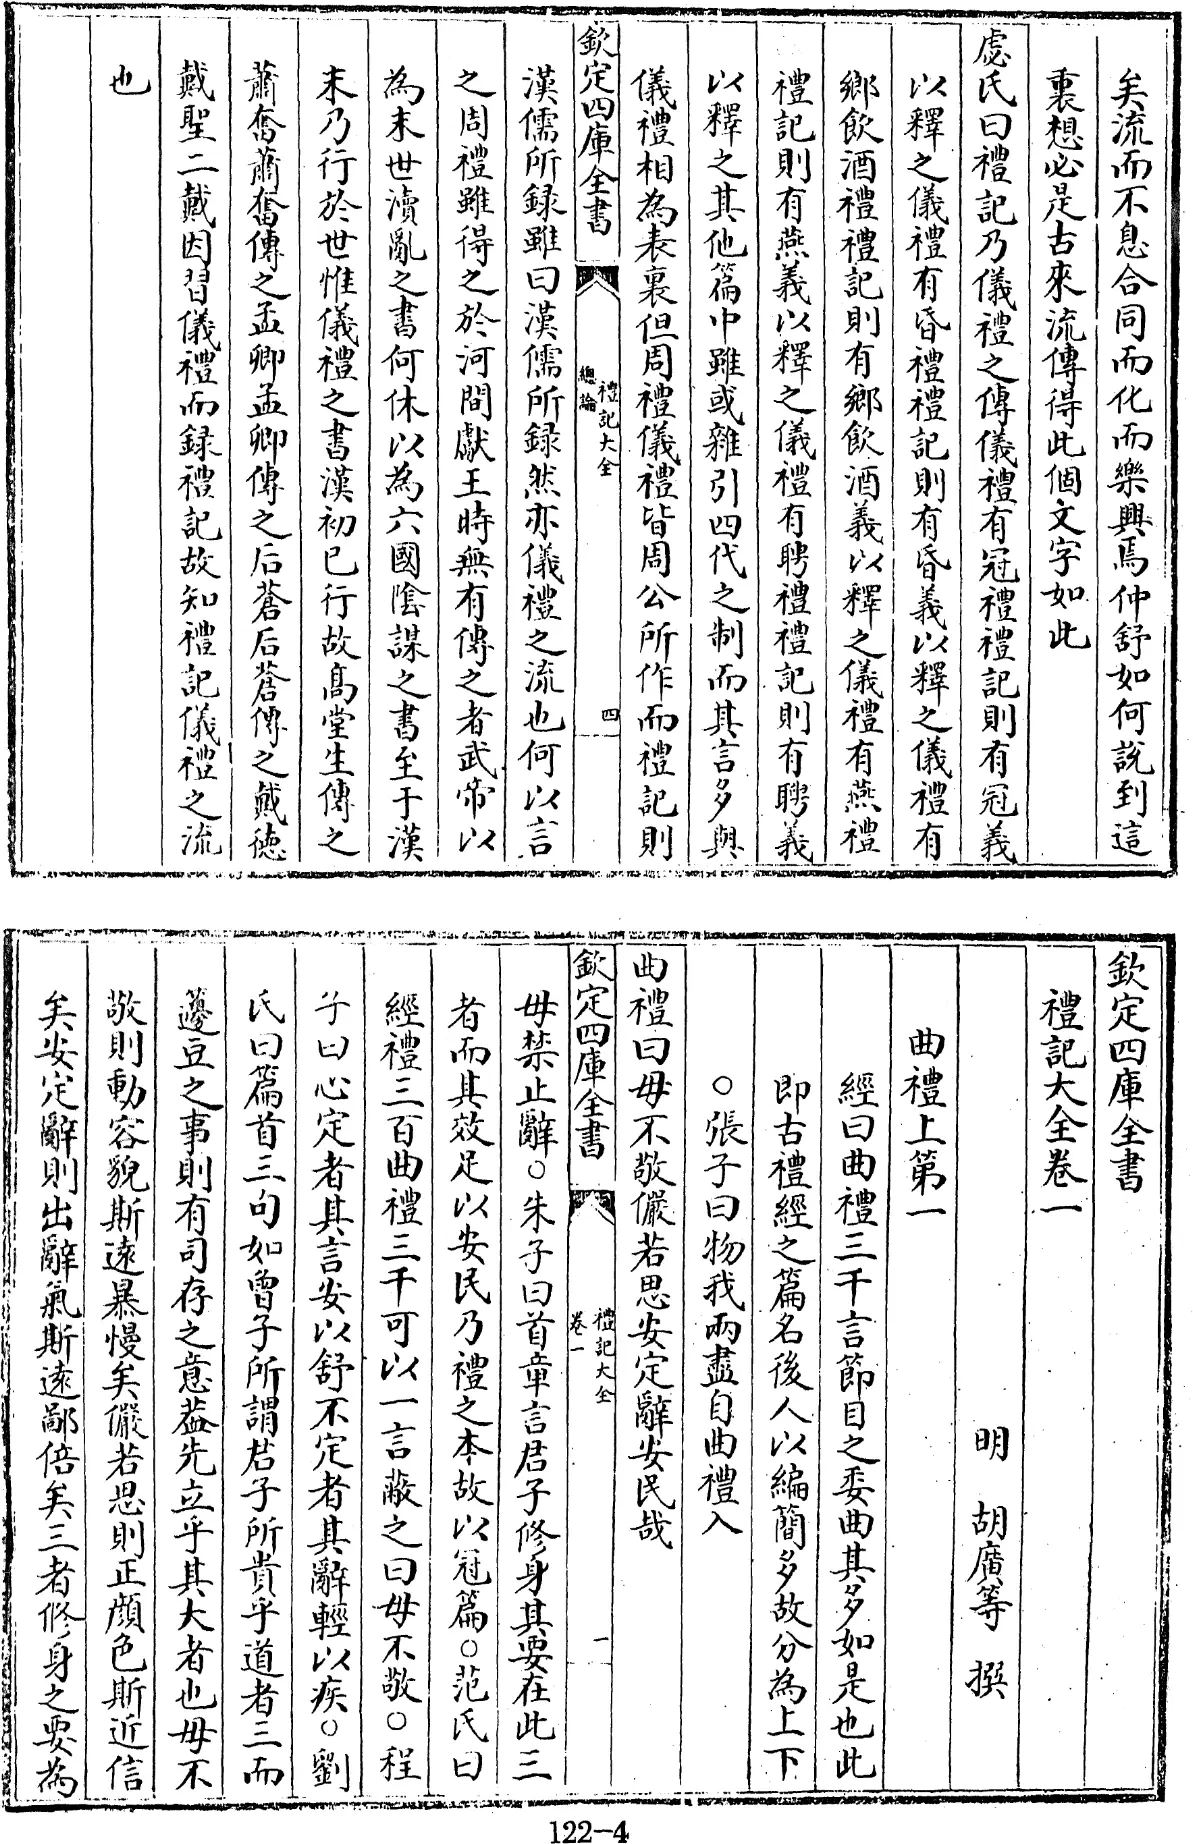 矣流而不息合同而化而樂興焉仲舒如何說到這
裏想必是古來流傳得此個文字如此
虙氏曰禮記乃儀禮之傳儀禮有冠禮禮記則有冠義
以釋之儀禮有昏禮禮記則有昏義以釋之儀禮有
鄉飲酒禮禮記則有鄉飲酒義以釋之儀禮有燕禮
禮記則有燕義以釋之儀禮有聘禮禮記則有聘義
以釋之其他篇中雖或雜引四代之制而其言多與
儀禮相為表裏但周禮儀禮皆周公所作而禮記則
欽定四庫全書
禮記大全
總論
四
漢儒所録雖曰漢儒所録然亦儀禮之流也何以言
之周禮雖得之於河間獻王時無有傳之者武帝以
為末世瀆亂之書何休以為六國陰謀之書至于漢
末乃行於世惟儀禮之書漢初已行故高堂生傳之
蕭奮蕭奮傳之孟卿孟卿傳之后蒼后蒼傳之戴德
戴聖二戴因習儀禮而録禮記故知禮記儀禮之流
也
欽定四庫全書
禮記大全卷一
明 胡廣等 撰
曲禮上第一
經曰曲禮三千言節目之委曲其多如是也此
即古禮經之篇名後人以編簡多故分為上下
○張子曰物我兩盡自曲禮入
曲禮曰毋不敬儼若思安定辭安民哉
欽定四庫全書
禮記大全
卷一
一
毋禁止辭○朱子曰首章言君子修身其要在此三
者而其效足以安民乃禮之本故以冠篇○范氏曰
經禮三百曲禮三千可以一言蔽之曰毋不敬○程
子曰心定者其言安以舒不定者其辭輕以疾○劉
氏曰篇首三句如曾子所謂君子所貴乎道者三而
籩豆之事則有司存之意葢先立乎其大者也毋不
敬則動容貌斯遠暴慢矣儼若思則正顔色斯近信
矣安定辭則出辭氣斯遠鄙倍矣三者修身之要為
122-4